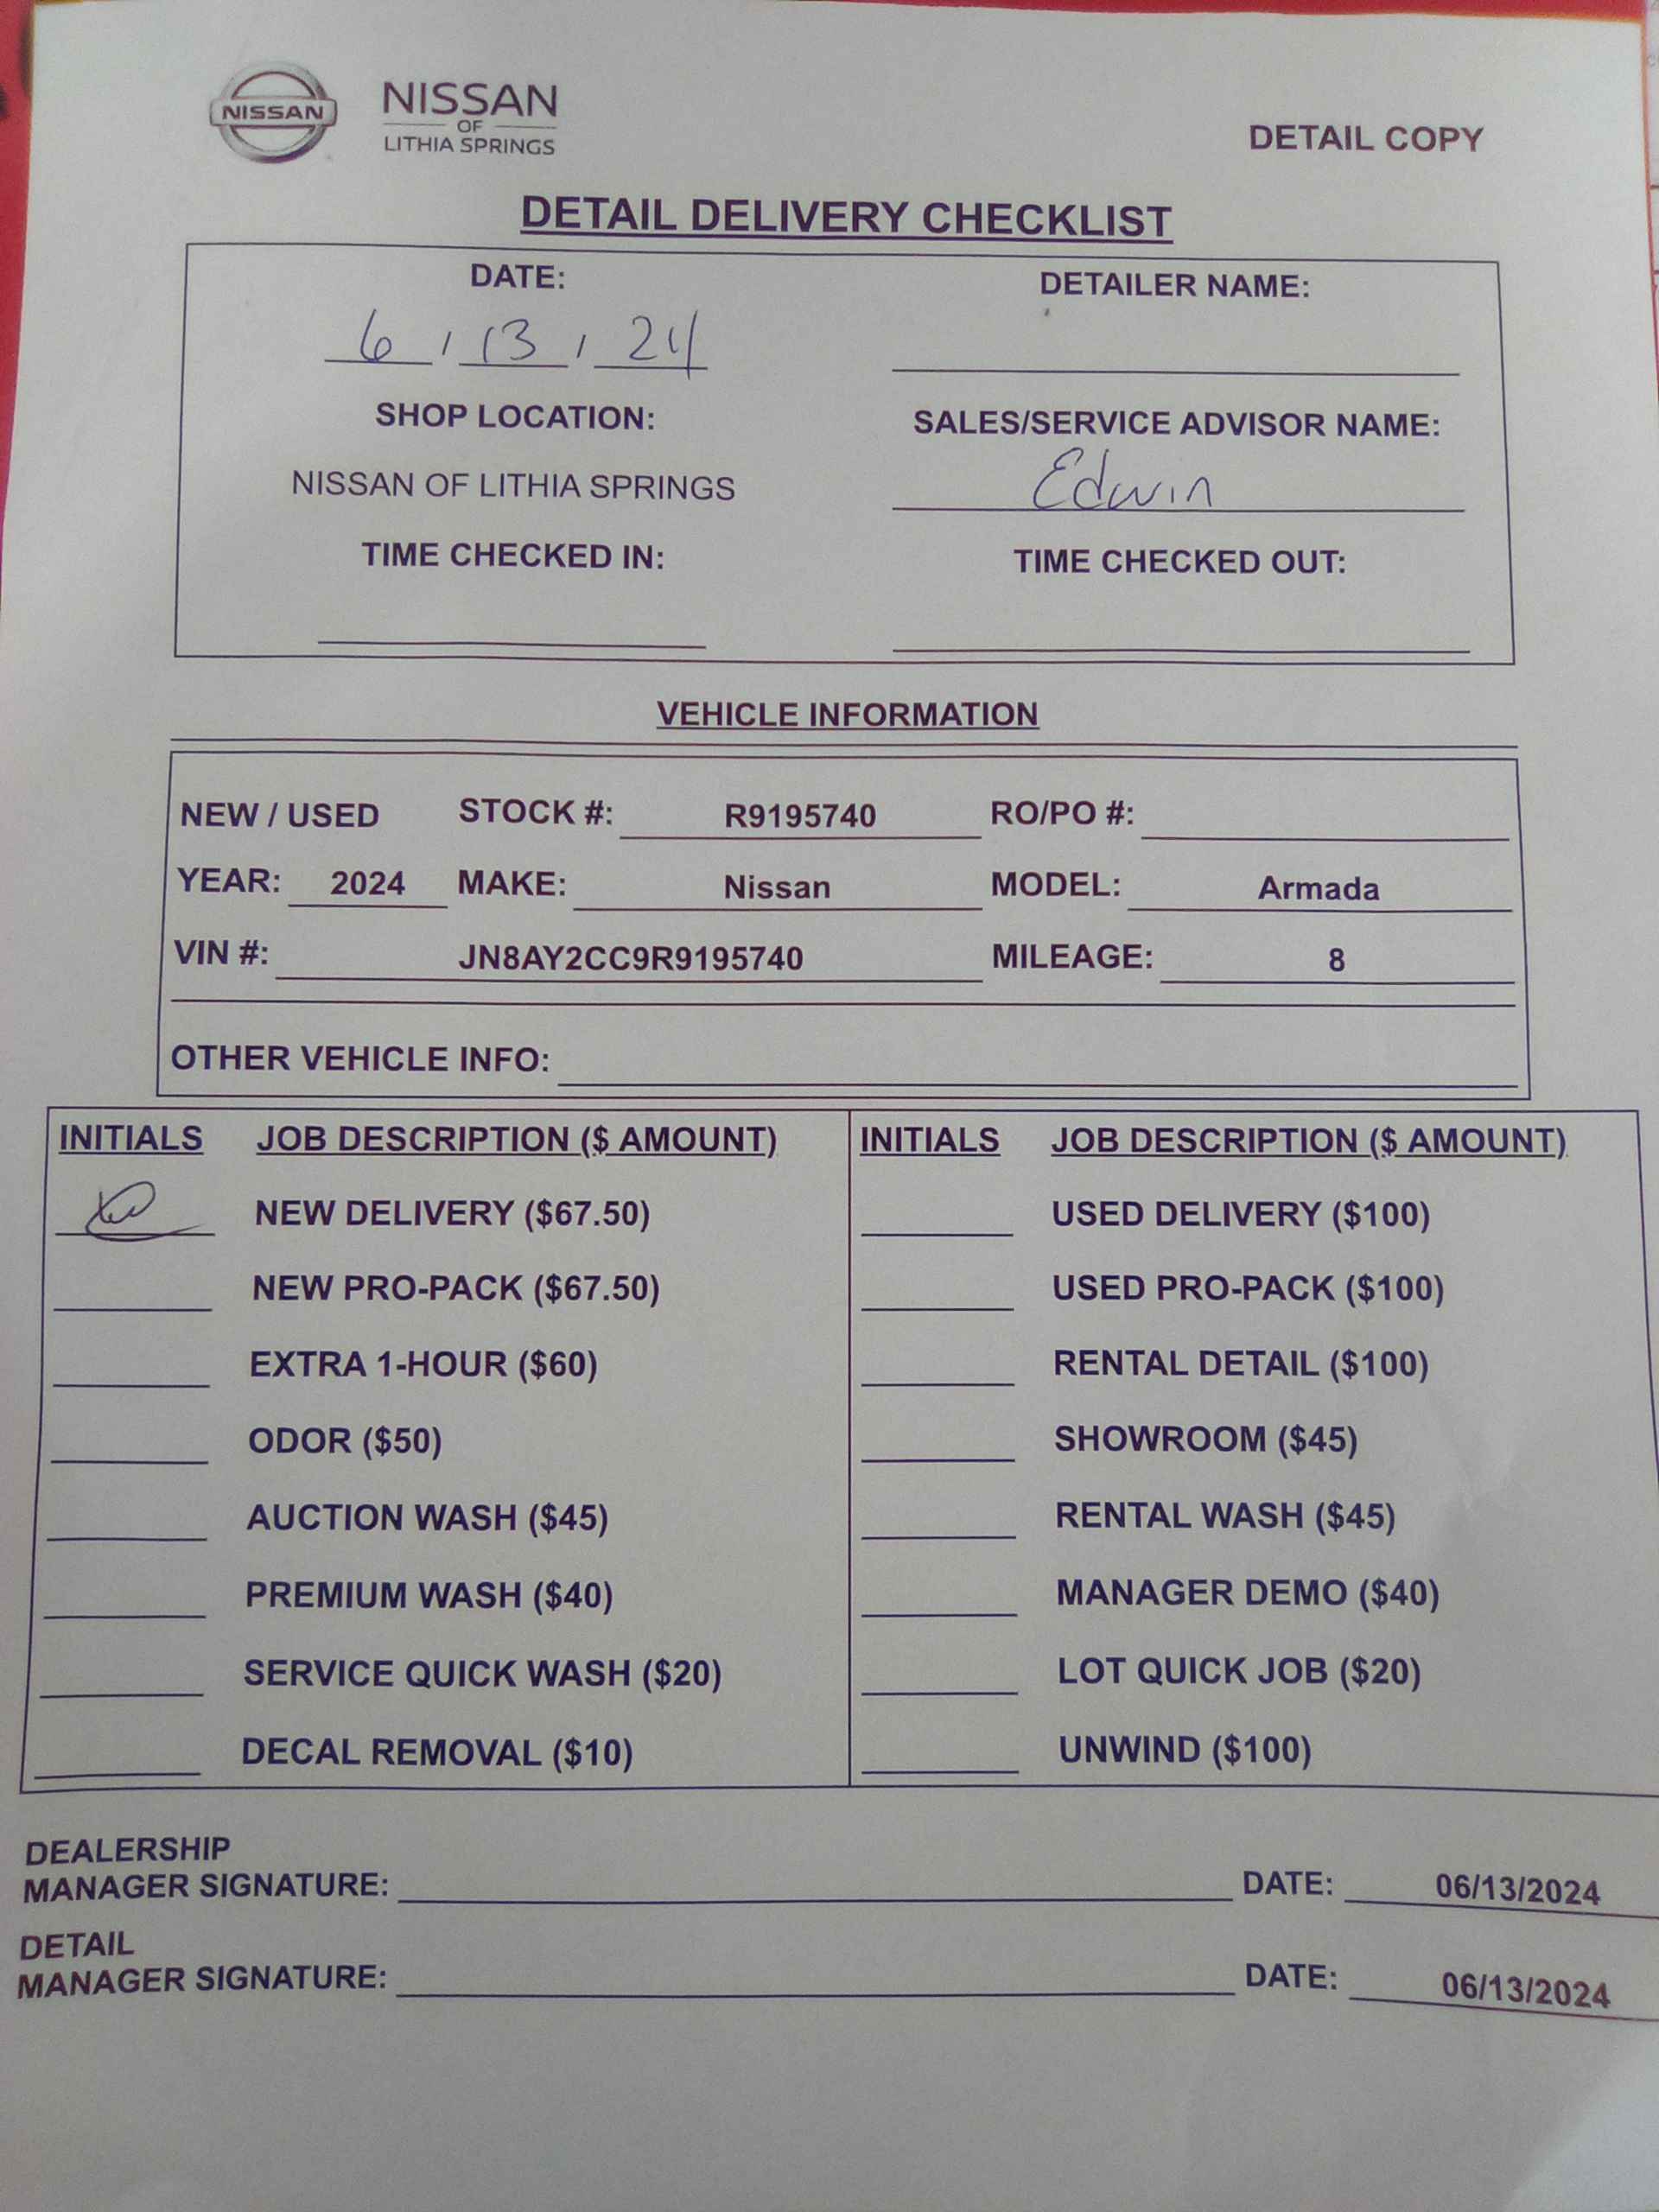 NISSAN
NISSAN
OF
LITHIA SPRINGS
DETAIL COPY
DETAIL DELIVERY CHECKLIST
DATE: DETAILER NAME:
6 / 13 / 24
SHOP LOCATION: SALES/SERVICE ADVISOR NAME:
NISSAN OF LITHIA SPRINGS Edwin
TIME CHECKED IN: TIME CHECKED OUT:
VEHICLE INFORMATION
NEW / USED STOCK #: R9195740 RO/PO #:
YEAR: 2024 MAKE: Nissan MODEL: Armada
VIN #: JN8AY2CC9R9195740 MILEAGE: 8
OTHER VEHICLE INFO:
INITIALS JOB DESCRIPTION ($ AMOUNT) INITIALS JOB DESCRIPTION ($ AMOUNT)
NEW DELIVERY ($67.50) USED DELIVERY ($100)
NEW PRO-PACK ($67.50) USED PRO-PACK ($100)
EXTRA 1-HOUR ($60) RENTAL DETAIL ($100)
ODOR ($50) SHOWROOM ($45)
AUCTION WASH ($45) RENTAL WASH ($45)
PREMIUM WASH ($40) MANAGER DEMO ($40)
SERVICE QUICK WASH ($20) LOT QUICK JOB ($20)
DECAL REMOVAL ($10) UNWIND ($100)
DEALERSHIP
MANAGER SIGNATURE: DATE: 06/13/2024
DETAIL
MANAGER SIGNATURE: DATE: 06/13/2024